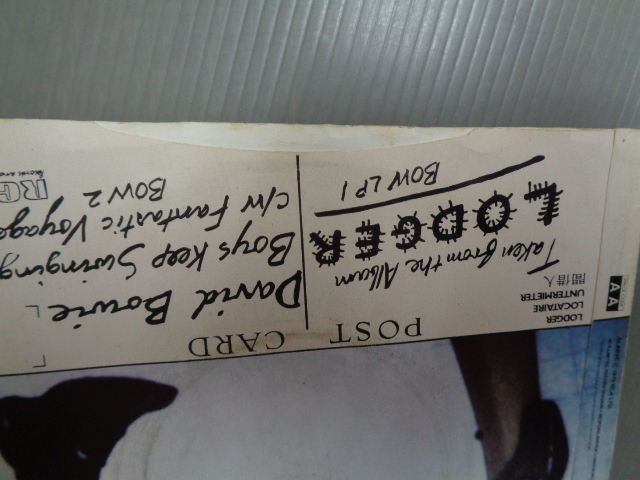 POST CARD
David Bowie
Boys Keep Swinging
c/w Fantastic Voyage
BOW 2
Taken from the Album
LODGER
BOW LP 1
LODGER
LOCATAIRE
UNTERMIETER
間借人
AA